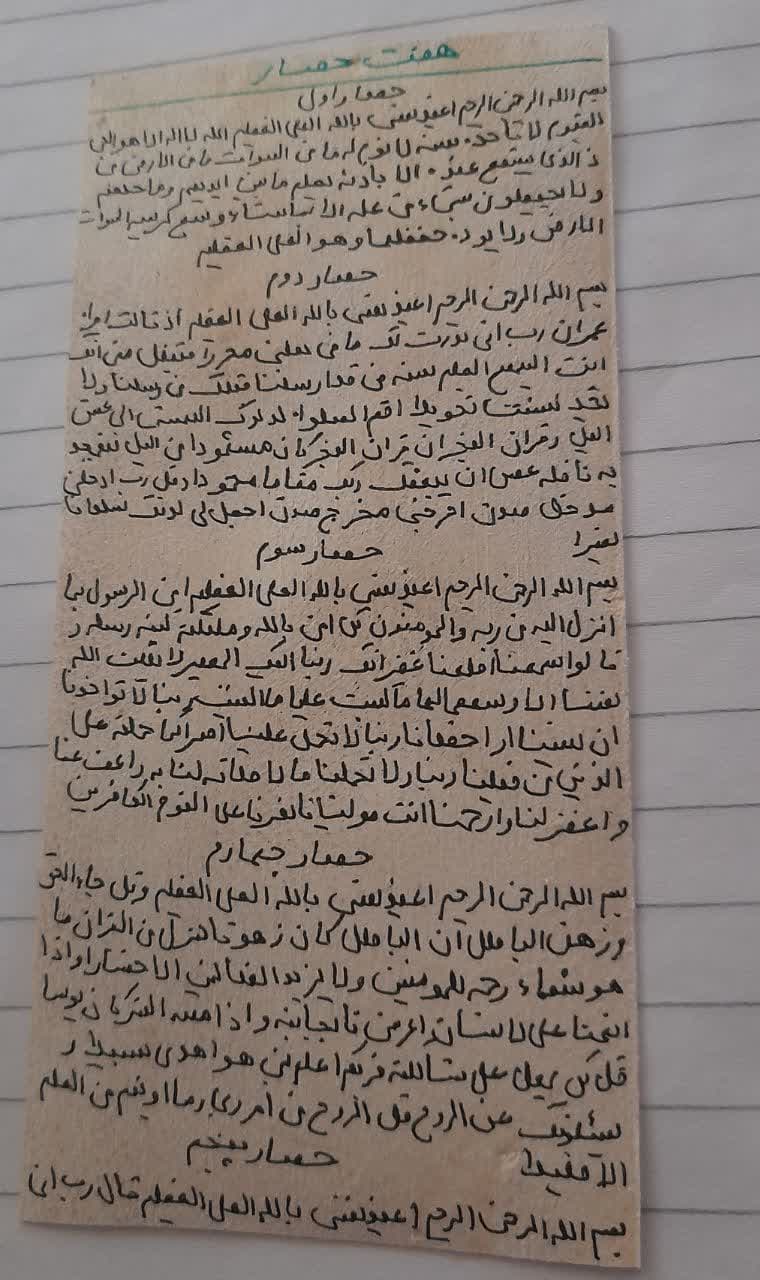 هفت حصار
حصار اول
بسم الله الرحمن الرحیم اعیذ نفسی بالله العلی العظیم الله لا اله الا هو الحی
القیوم لا تأخذه سنه لا نوم له ما فی السموات ما فی الارض من
ذ الذی یشفع عنده الا باذنه یعلم ما بین ایدیهم وما خلفهم
ولا یحیطون شیء من علمه الا بما شاء وسع کرسیه السموات
الارض ولا یوده حفظهما وهو العلی العظیم
حصار دوم
بسم الله الرحمن الرحیم اعیذ نفسی بالله العلی العظیم اذ قالت امراة
عمران رب انی نذرت لک ما فی بطنی محررا فتقبل منی انک
انت السمیع العلیم سنه من قد ارسلنا قبلک من رسلنا ولا
تجد لسنتنا تحویلا اقم الصلواه لدلوک الشمس الی غسق
الیل وقران الفجر ان قران الفجر کان مشهودا من الیل فتهجد
به نافله عسی ان یبعثک ربک مقاما محمودا وقل رب ادخلنی
مدخل صدق اخرجنی مخرج صدق اجعل لی لدنک سلطانا
نصیرا
حصار سوم
بسم الله الرحمن الرحیم اعیذ نفسی بالله العلی العظیم امن الرسول بما
انزل الیه من ربه والمومنون کل امن بالله وملئکته کتبه رسله و
قالوا سمعنا اطعنا غفرانک ربنا الیک المصیر لا یکلف الله
نفسا الا وسعها لها ما کسبت علیها ما اکتسبت ربنا لا تواخذنا
ان نسینا او اخطانا ربنا لا تحمل علینا اصرا کما حملته علی
الذین من قبلنا ربنا ولا تحملنا ما لا طاقه لنا به واعف عنا
واغفر لنا وارحمنا انت مولینا فانصرنا علی القوم الکافرین
حصار چهارم
بسم الله الرحمن الرحیم اعیذ نفسی بالله العلی العظیم وقل جاء الحق
وزهق الباطل ان الباطل کان زهوقا ننزل من القران ما
هو شفاء رحمه للمومنین ولا یزید الظالمین الا خسارا واذا
انعمنا علی الانسان اعرض نابجانبه واذا مسه الشر کان یوسا
قل کل یعمل علی شاکلته فربکم اعلم بمن هو اهدی سبیلا و
یسئلونک عن الروح قل الروح من امر ربی وما اوتیتم من العلم
الا قلیلا
حصار پنجم
بسم الله الرحمن الرحیم اعیذ نفسی بالله العلی العظیم قال رب انی